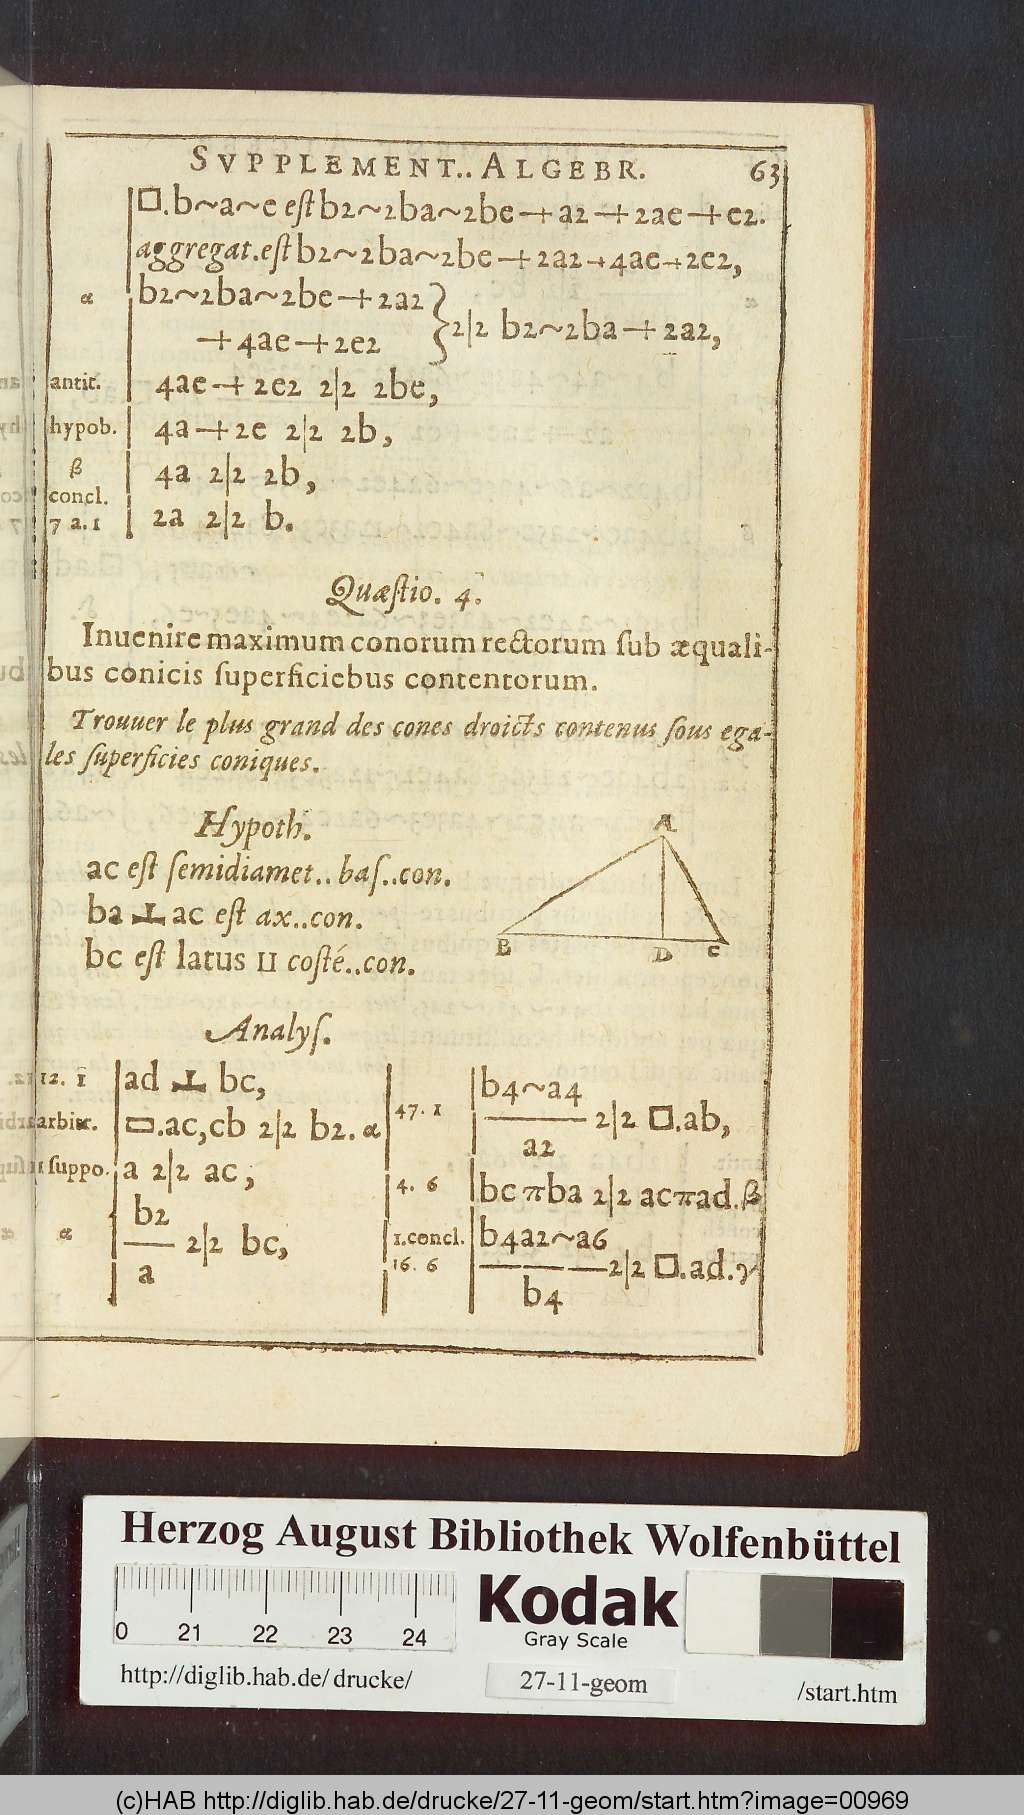 SVPPLEMENT.. ALGEBR. 63
□.b~a~e eſt b2~2ba~2be+a2+2ae+e2.
aggregat.eſt b2~2ba~2be+2a2+4ae+2e2,
α b2~2ba~2be+2a2
+4ae+2e2 } 2|2 b2~2ba+2a2,
antit. 4ae+2e2 2|2 2be,
hypob. 4a+2e 2|2 2b,
β 4a 2|2 2b,
concl.
7 a. 1 2a 2|2 b.
Quæſtio. 4.
Inuenire maximum conorum rectorum ſub æquali-
bus conicis ſuperficiebus contentorum.
Trouuer le plus grand des cones droicts contenus ſous ega-
les ſuperficies coniques.
Hypoth.
ac eſt ſemidiamet.. baſ..con.
ba ⊥ ac eſt ax..con.
bc eſt latus II coſté..con.
A
B D C
Analyſ.
12. 1 ad ⊥ bc,
arbitr. ▭.ac,cb 2|2 b2. α
1 ſuppo. a 2|2 ac,
b2
α — 2|2 bc,
a
b4~a4
47. 1 — 2|2 □.ab,
a2
4. 6 bc π ba 2|2 ac π ad. β
1.concl. b4a2~a6
16. 6 — 2|2 □.ad. γ
b4
Herzog August Bibliothek Wolfenbüttel
Kodak
Gray Scale
0 21 22 23 24
http://diglib.hab.de/drucke/ 27-11-geom /start.htm
(c)HAB http://diglib.hab.de/drucke/27-11-geom/start.htm?image=00969